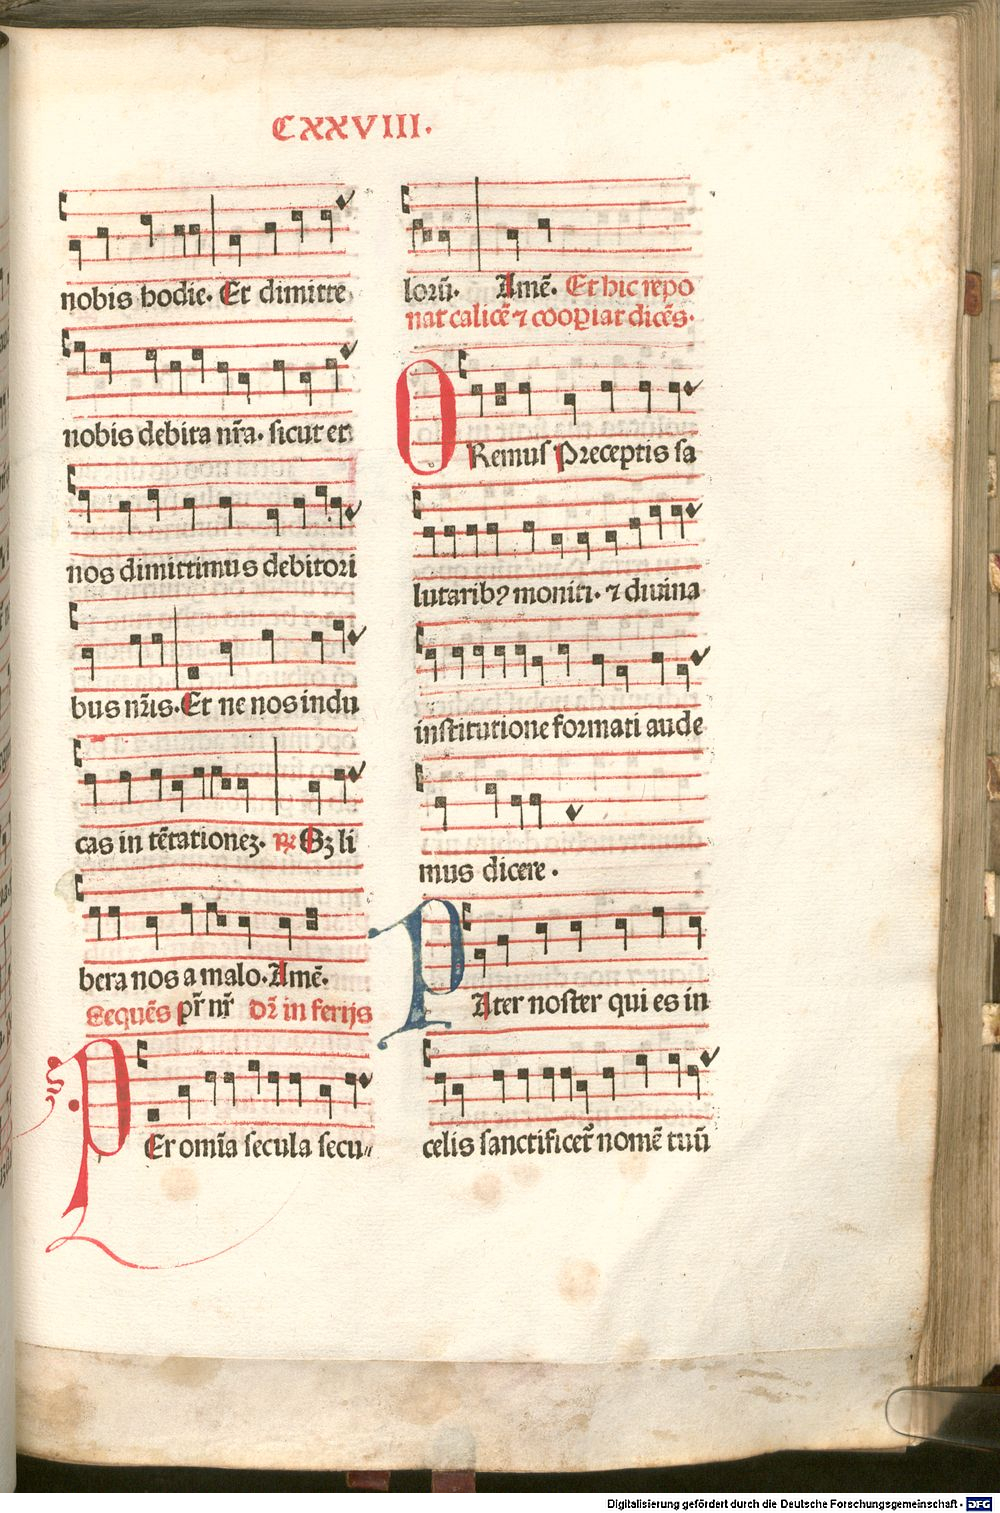 CXXVIII.
nobis hodie. Et dimitte
nobis debita nr̃a. sicut et
nos dimittimus debitori
bus nr̃is. Et ne nos indu
cas in tẽtationeʒ. ℞ Sʒ li
bera nos a malo. Amẽ.
Sequẽs pr̃ nr̃ dr̃ in ferijs
Per om̃ia secula secu〃
lorũ. Amẽ. Et hic repo
nat calicẽ ⁊ cooꝑiat dicẽs.
ORemus Preceptis sa
lutaribꝰ moniti. ⁊ diuina
institutione formati aude
mus dicere.
PAter noster qui es in
celis sanctificet᷑ nomẽ tuũ
Digitalisierung gefördert durch die Deutsche Forschungsgemeinschaft - DFG